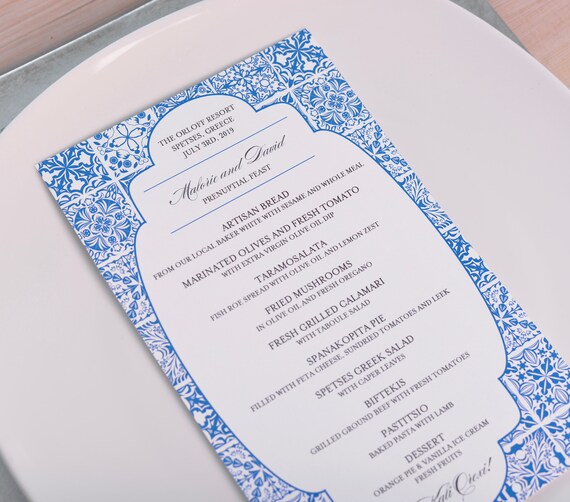 THE ORLOFF RESORT
SPETSES, GREECE
JULY 3RD, 2019
Malorie and David
PRENUPTIAL FEAST
ARTISAN BREAD
FROM OUR LOCAL BAKER WHITE WITH SESAME AND WHOLE MEAL
MARINATED OLIVES AND FRESH TOMATO
WITH EXTRA VIRGIN OLIVE OIL DIP
TARAMOSALATA
FISH ROE SPREAD WITH OLIVE OIL AND LEMON ZEST
FRIED MUSHROOMS
IN OLIVE OIL AND FRESH OREGANO
FRESH GRILLED CALAMARI
WITH TABOULE SALAD
SPANAKOPITA PIE
FILLED WITH FETA CHEESE, SUNDRIED TOMATOES AND LEEK
SPETSES GREEK SALAD
WITH CAPER LEAVES
BIFTEKIS
GRILLED GROUND BEEF WITH FRESH TOMATOES
PASTITSIO
BAKED PASTA WITH LAMB
DESSERT
ORANGE PIE & VANILLA ICE CREAM
FRESH FRUITS
Kali Orexi!